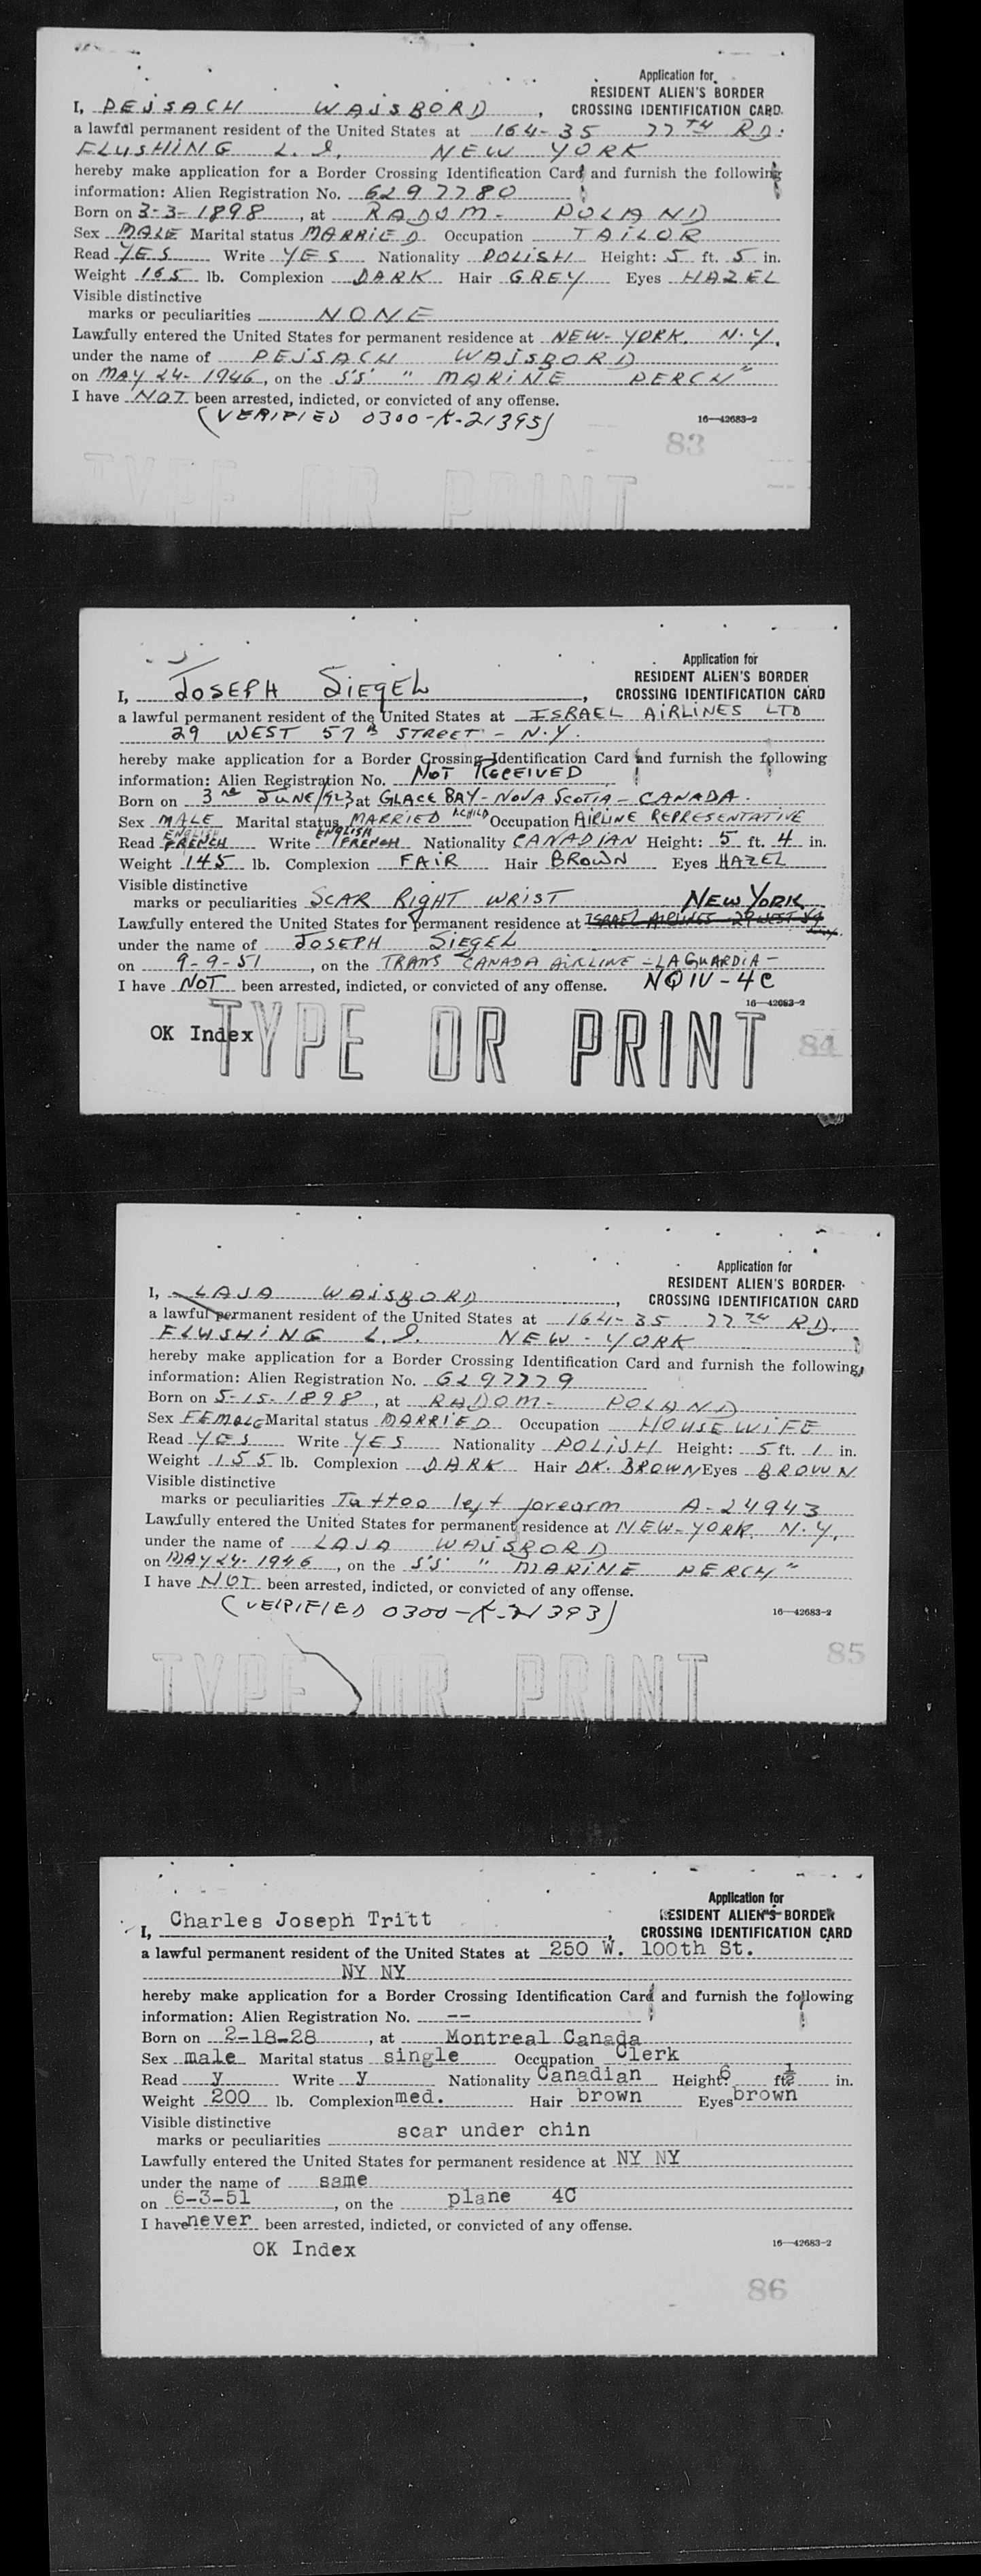 Application for
RESIDENT ALIEN'S BORDER
I, PEJSACH WAJSBORD, CROSSING IDENTIFICATION CARD
a lawful permanent resident of the United States at 164-35 77TH RD.
FLUSHING L. I. NEW YORK
hereby make application for a Border Crossing Identification Card and furnish the following
information: Alien Registration No. 6297780
Born on 3-3-1898, at RADOM - POLAND
Sex MALE Marital status MARRIED Occupation TAILOR
Read YES Write YES Nationality POLISH Height: 5 ft. 5 in.
Weight 165 lb. Complexion DARK Hair GREY Eyes HAZEL
Visible distinctive
marks or peculiarities NONE
Lawfully entered the United States for permanent residence at NEW-YORK, N.Y.
under the name of PEJSACH WAJSBORD
on MAY 24-1946, on the S'S' " MARINE PERCH"
I have NOT been arrested, indicted, or convicted of any offense.
(VERIFIED 0300-K-21395)
16—42683-2
83
TYPE OR PRINT
Application for
RESIDENT ALIEN'S BORDER
I, JOSEPH SIEGEL, CROSSING IDENTIFICATION CARD
a lawful permanent resident of the United States at ISRAEL AIRLINES LTD
29 WEST 57th STREET - N.Y.
hereby make application for a Border Crossing Identification Card and furnish the following
information: Alien Registration No. NOT RECEIVED
Born on 3RD JUNE/923 at GLACE BAY - NOVA SCOTIA - CANADA.
Sex MALE Marital status MARRIED 1 CHILD Occupation AIRLINE REPRESENTATIVE
Read ENGLISH FRENCH Write ENGLISH FRENCH Nationality CANADIAN Height: 5 ft. 4 in.
Weight 145 lb. Complexion FAIR Hair BROWN Eyes HAZEL
Visible distinctive
marks or peculiarities SCAR RIGHT WRIST NEW YORK
Lawfully entered the United States for permanent residence at ISRAEL AIRLINES 29 WEST
under the name of JOSEPH SIEGEL
on 9-9-51, on the TRANS CANADA AIRLINE - LA GUARDIA -
I have NOT been arrested, indicted, or convicted of any offense. NQIV-4C
16—42683-2
OK Index
TYPE OR PRINT
84
Application for
RESIDENT ALIEN'S BORDER
I, LAJA WAJSBORD, CROSSING IDENTIFICATION CARD
a lawful permanent resident of the United States at 164-35 77TH RD.
FLUSHING L. I. NEW-YORK
hereby make application for a Border Crossing Identification Card and furnish the following
information: Alien Registration No. 6297779
Born on 5-15-1898, at RADOM - POLAND
Sex FEMALE Marital status MARRIED Occupation HOUSEWIFE
Read YES Write YES Nationality POLISH Height: 5 ft. 1 in.
Weight 155 lb. Complexion DARK Hair DK. BROWN Eyes BROWN
Visible distinctive
marks or peculiarities Tattoo left forearm A-24943
Lawfully entered the United States for permanent residence at NEW-YORK, N.Y.
under the name of LAJA WAJSBORD
on MAY 24-1946, on the S'S' " MARINE PERCH"
I have NOT been arrested, indicted, or convicted of any offense.
(VERIFIED 0300-K-21393)
16—42683-2
85
TYPE OR PRINT
Application for
RESIDENT ALIEN'S BORDER
I, Charles Joseph Tritt, CROSSING IDENTIFICATION CARD
a lawful permanent resident of the United States at 250 W. 100th St.
NY NY
hereby make application for a Border Crossing Identification Card and furnish the following
information: Alien Registration No. --
Born on 2-18-28, at Montreal Canada
Sex male Marital status single Occupation Clerk
Read y Write y Nationality Canadian Height: 6 ft. 1/2 in.
Weight 200 lb. Complexion med. Hair brown Eyes brown
Visible distinctive
marks or peculiarities scar under chin
Lawfully entered the United States for permanent residence at NY NY
under the name of same
on 6-3-51, on the plane 4C
I have never been arrested, indicted, or convicted of any offense.
OK Index
16—42683-2
86